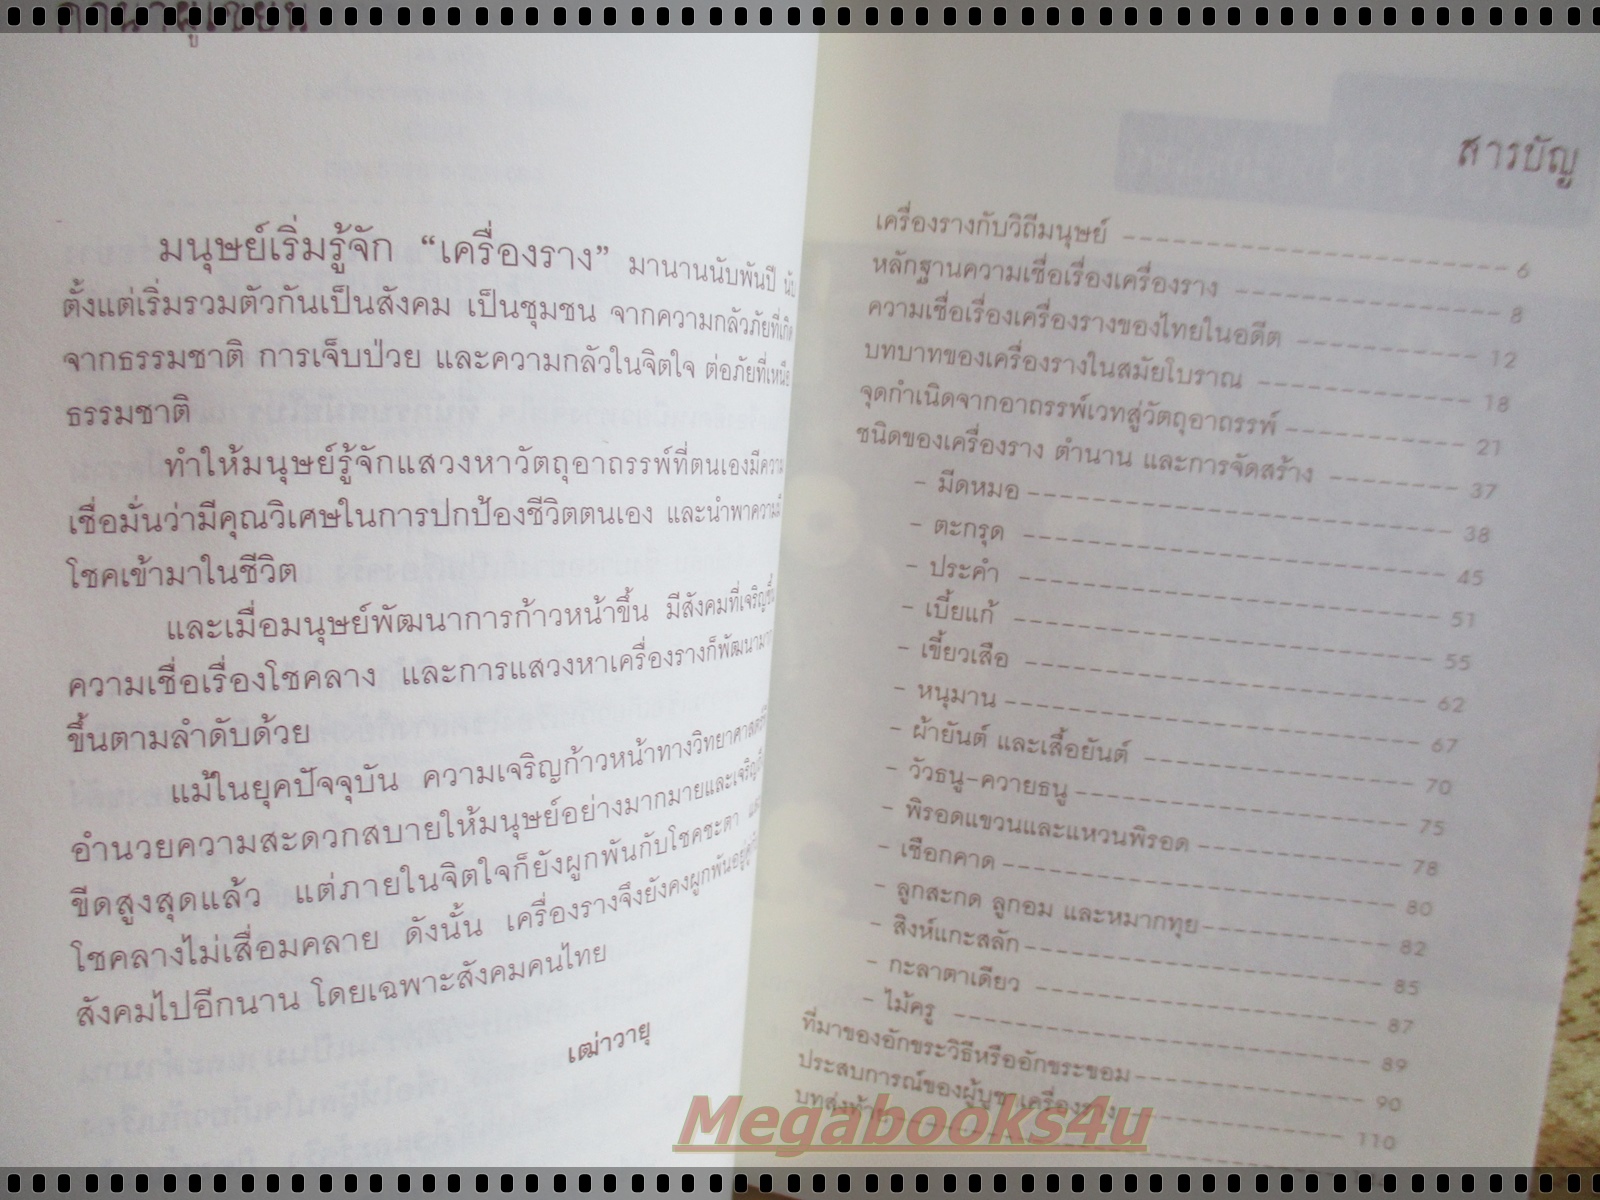 มนุษย์เริ่มรู้จัก “เครื่องราง” มานานนับพันปี นับ
ตั้งแต่เริ่มรวมตัวกันเป็นสังคม เป็นชุมชน จากความกลัวภัยที่เกิด
จากธรรมชาติ การเจ็บป่วย และความกลัวในจิตใจ ต่อภัยที่เหนือ
ธรรมชาติ
ทำให้มนุษย์รู้จักแสวงหาวัตถุอาถรรพ์ที่ตนเองมีความ
เชื่อมั่นว่ามีคุณวิเศษในการปกป้องชีวิตตนเอง และนำพาความมี
โชคเข้ามาในชีวิต
และเมื่อมนุษย์พัฒนาการก้าวหน้าขึ้น มีสังคมที่เจริญขึ้น
ความเชื่อเรื่องโชคลาง และการแสวงหาเครื่องรางก็พัฒนามาก
ขึ้นตามลำดับด้วย
แม้ในยุคปัจจุบัน ความเจริญก้าวหน้าทางวิทยาศาสตร์
อำนวยความสะดวกสบายให้มนุษย์อย่างมากมายและเจริญถึง
ขีดสูงสุดแล้ว แต่ภายในจิตใจก็ยังผูกพันกับโชคชะตา และ
โชคลางไม่เสื่อมคลาย ดังนั้น เครื่องรางจึงยังคงผูกพันอยู่คู่กับ
สังคมไปอีกนาน โดยเฉพาะสังคมคนไทย
เฒ่าวายุ
สารบัญ
เครื่องรางกับวิถีมนุษย์ 6
หลักฐานความเชื่อเรื่องเครื่องราง 8
ความเชื่อเรื่องเครื่องรางของไทยในอดีต 12
บทบาทของเครื่องรางในสมัยโบราณ 18
จุดกำเนิดจากอาถรรพ์เวทสู่วัตถุอาถรรพ์ 21
ชนิดของเครื่องราง ตำนาน และการจัดสร้าง 37
- มีดหมอ 38
- ตะกรุด 45
- ประคำ 51
- เบี้ยแก้ 55
- เขี้ยวเสือ 62
- หนุมาน 67
- ผ้ายันต์ และเสื้อยันต์ 70
- วัวธนู-ควายธนู 75
- พิรอดแขวนและแหวนพิรอด 78
- เชือกคาด 80
- ลูกสะกด ลูกอม และหมากทุย 82
- สิงห์แกะสลัก 85
- กะลาตาเดียว 87
- ไม้ครู 89
ที่มาของอักขระวิธีหรืออักขระขอม 90
ประสบการณ์ของผู้บูชาเครื่องราง 110
บทส่งท้าย
Megabooks4u